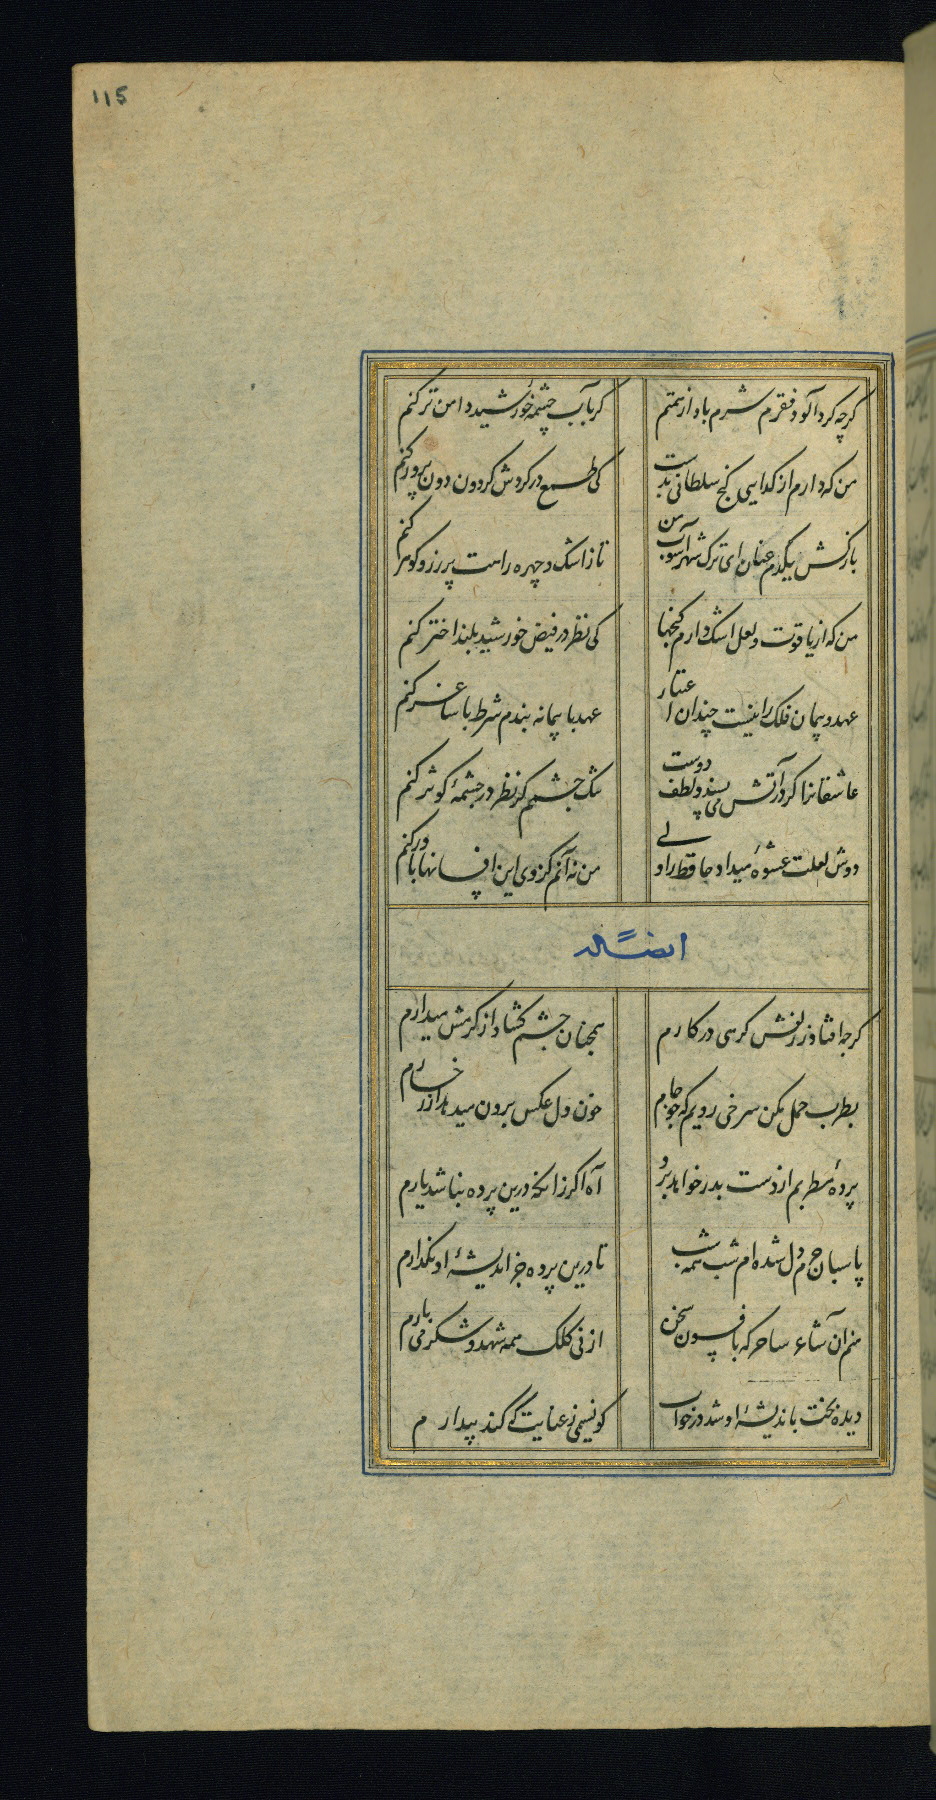 115
کرچه کرد آلود فقرم شرم باد از همتم کر بآب چشمه خورشید دامن تر کنم
من که دارم از کدایی کنج سلطانی بدست کی طمع در کردش کردون دون پرور کنم
بازکش یکدم عنان ای ترک شهرآشوب من تا ز اشک و چهره راهت پر زر و کوهر کنم
من که از یاقوت و لعل اشک دارم کنجها کی نظر در فیض خورشید بلند اختر کنم
عهد و پیمان فلک را نیست چندان اعتبار عهد با پیمانه بندم شرط با ساغر کنم
عاشقانرا کر در آتش می پسندد لطف دوست تنک چشمم کر نظر در چشمهٔ کوثر کنم
دوش لعلت عشوهٔ میداد حافظ را ولی من نه آنم کز وی این افسانها باور کنم
ایضاً له
کرچه افتاد ز زلفش کرهی در کارم همچنان چشم کشاد از کرمش میدارم
بطرب حمل مکن سرخی رویم که چو جام خون دل عکس برون میدهد از رخسارم
پردهٔ مطربم از دست بدر خواهد برد آه اگر زانکه درین پرده نباشد یارم
پاسبان حرم دل شده ام شب همه شب تا درین پرده جز اندیشهٔ او نکذارم
منم آن شاعر ساحر که بافسون سخن از نی کلک همه شهد و شکر می بارم
دیده بخت باندیشهٔ او شد در خواب کو نسیمی ز عنایت که کند بیدارم